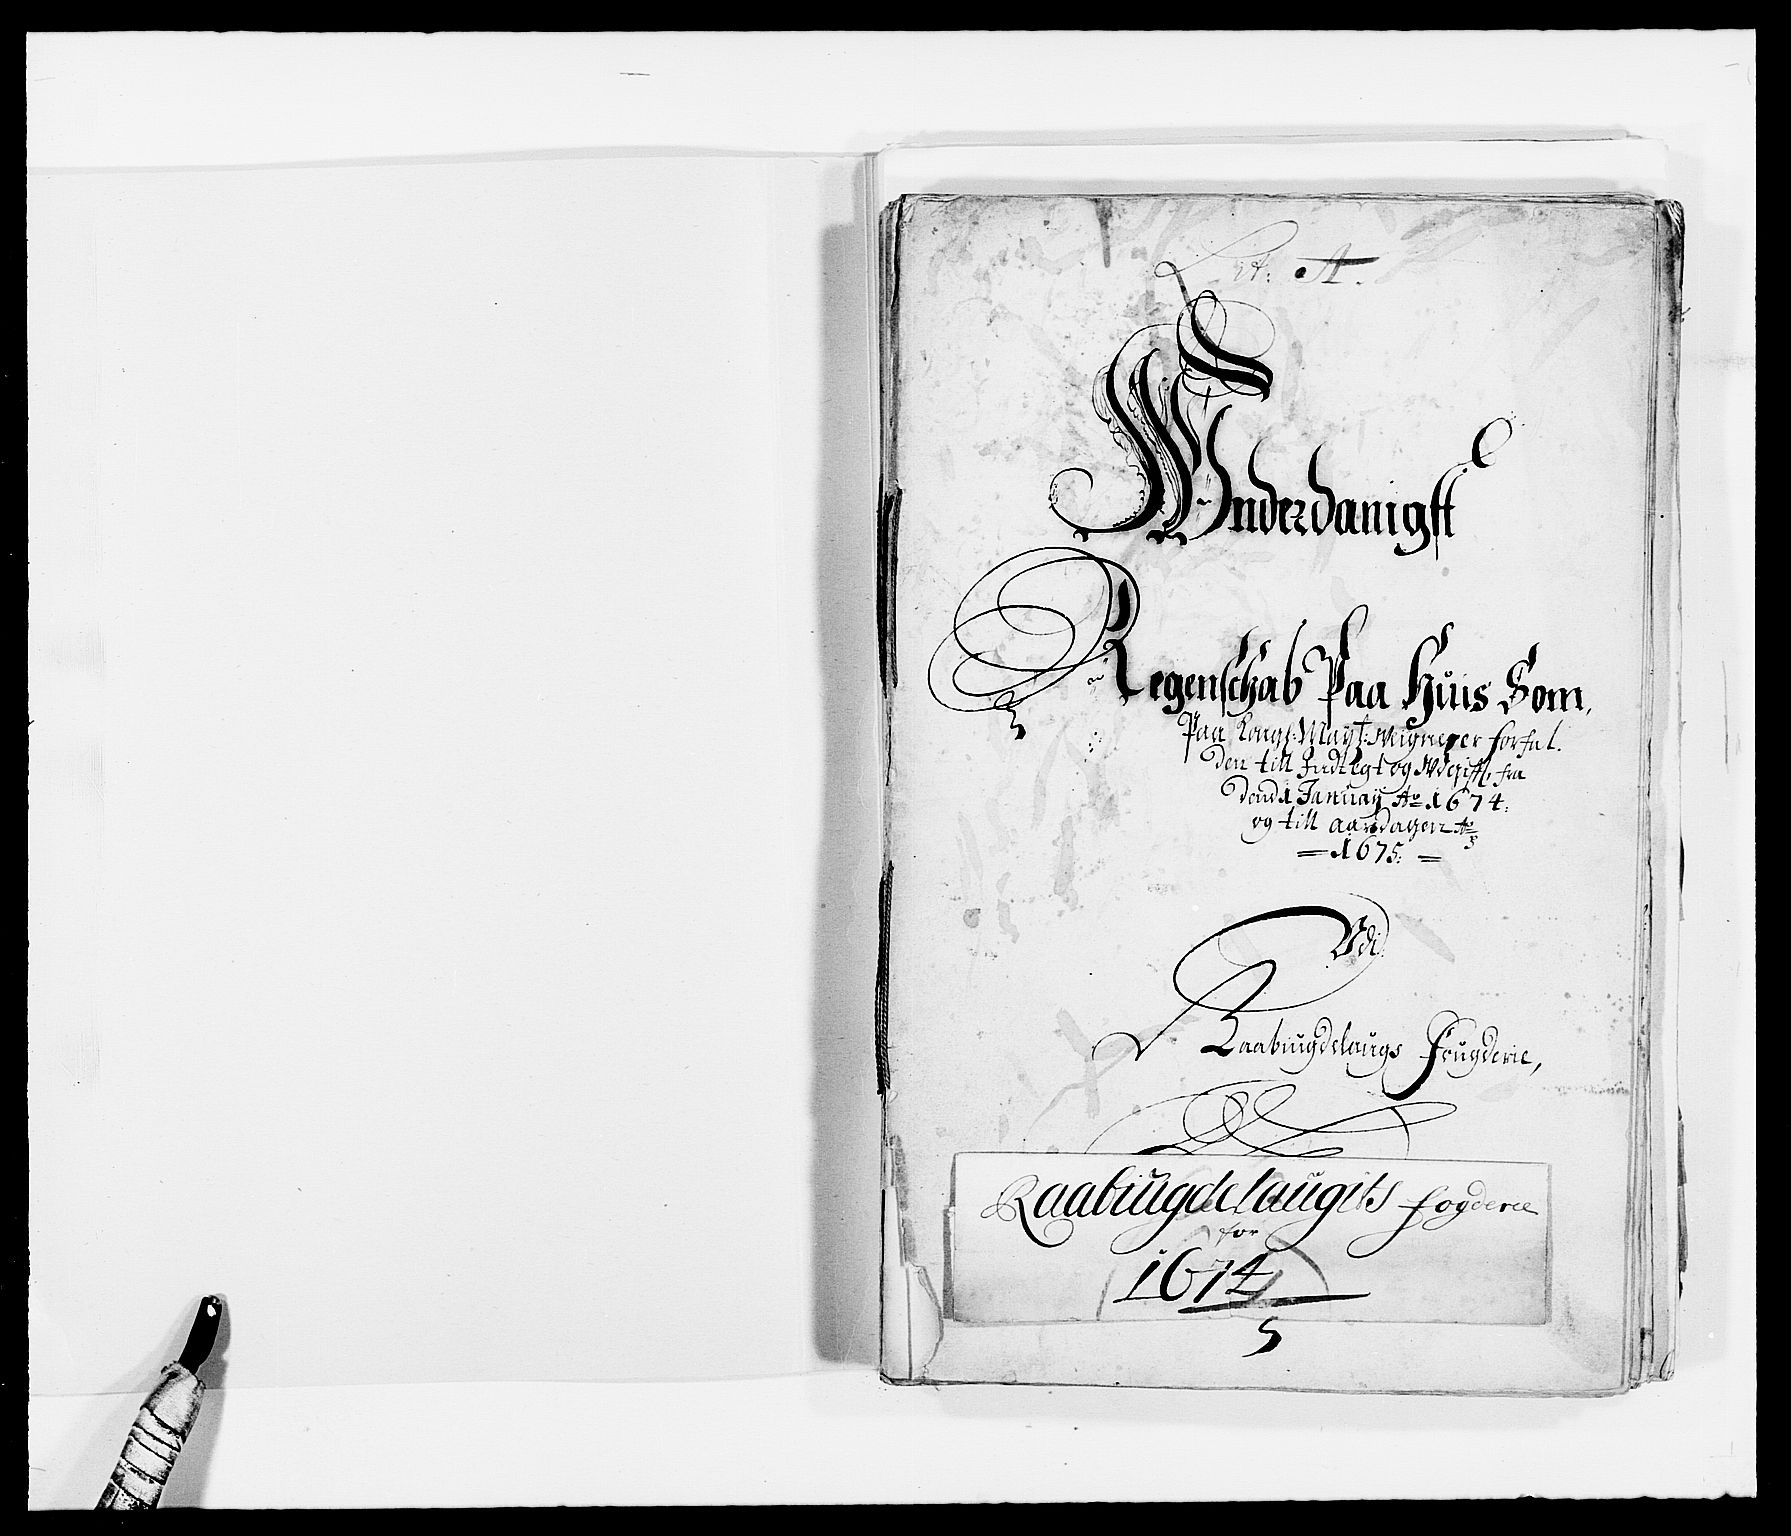 Lit: A.
Underdanigst
Regenschab Paa Huis Som,
Paa Kongl: Mayt: Weigneger forfal-
den till Indtegt og Wdgifft, fra
Dend 1 January Ao 1674:
og till aarsdagen Ao
1675:
Vdi
Raabiugdelaugs Fougderie,
Raabiugdelaugits fogderie
for
1674
5